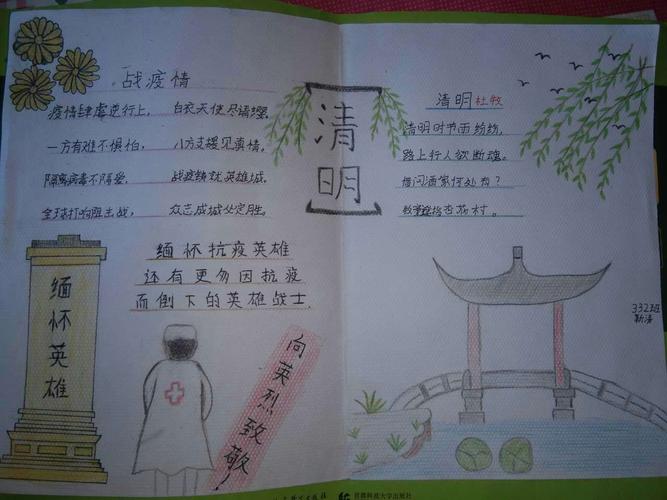 战疫情
疫情肆虐逆行上， 白衣天使尽语缨。
一方有难不惧怕， 八方支援见真情。
隔离病毒不隔爱， 战疫铸就英雄城。
全球打响阻击战， 众志成城必定胜。
缅怀抗疫英雄
还有更勿因抗疫
而倒下的英雄战士
缅怀英雄
向英烈致敬！
清明
清明 杜牧
清明时节雨纷纷，
路上行人欲断魂。
借问酒家何处有？
牧童遥指杏花村。
332班
首都师范大学出版社